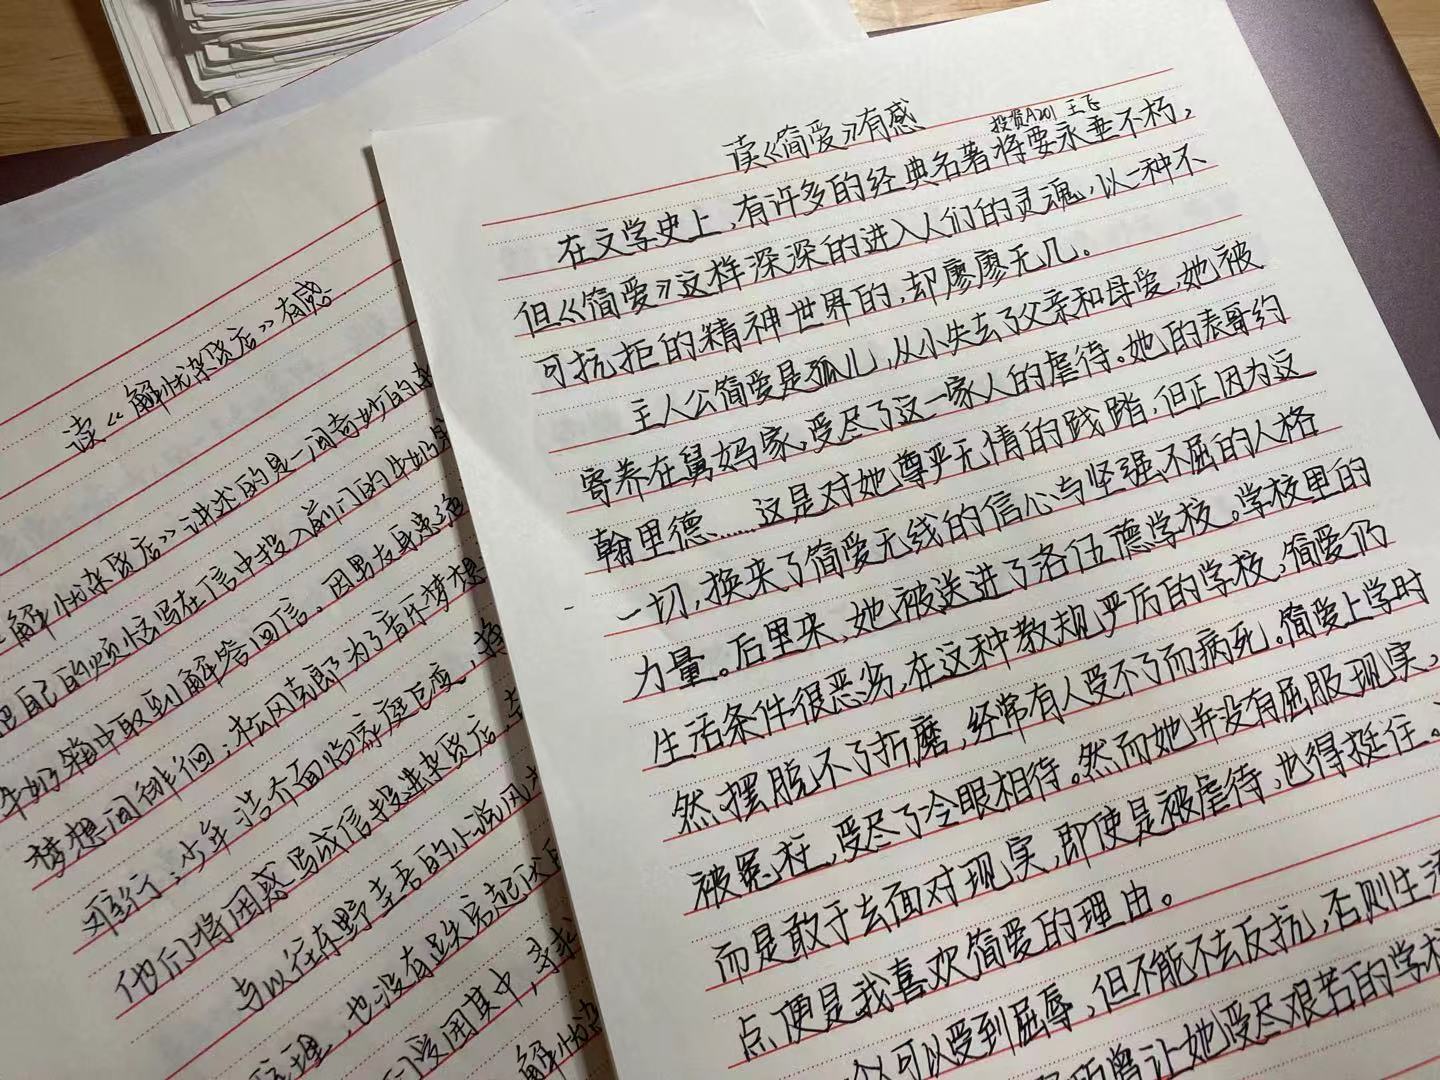 读《解忧杂货店》有感
解忧杂货店》讲述的是一间奇妙的杂
把自己的烦恼写在信中投入前门的牛奶
牛奶箱中取到解答回信。因男友身患绝
梦想间徘徊；松冈克郎为了音乐梦想
难行；少年浩介面临家庭巨变，
他们将困惑写成信投进杂货店，
与以往东野圭吾的小说风
也没有跌宕起伏
们爱困其中，寻求
解忧杂
读《简爱》有感
投资A201 王飞
在文学史上，有许多的经典名著将要永垂不朽，
但《简爱》这样深深的进入人们的灵魂，以一种不
可抗拒的精神世界的，却廖廖无几。
主人公简爱是孤儿，从小失去了父亲和母爱，她被
寄养在舅妈家，受尽了这一家人的虐待。她的表哥约
翰里德……这是对她尊严无情的践踏，但正因为这
一切，换来了简爱无线的信心与坚强不屈的人格
力量。后里来，她被送进了洛伍德学校。学校里的
生活条件很恶劣，在这种教规严厉的学校，简爱仍
然摆脱不了折磨，经常有人受不了而病死。简爱上学时
被冤枉，受尽了冷眼相待。然而她并没有屈服现实，
而是敢于去面对现实，即使是被虐待，也得挺住。
点便是我喜欢简爱的理由。
可以受到屈辱，但不能不去反抗，否则生活
曾让她受尽艰苦的学校